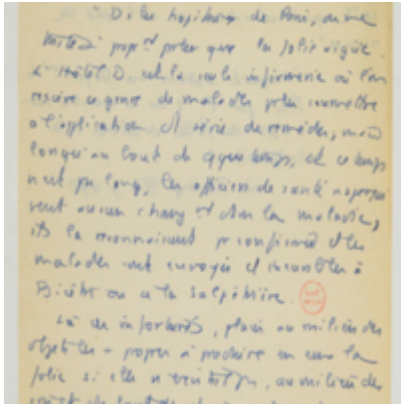 Ds les hopitaux de Paris, on ne
traite pr que la folie aigüe.
L'Hôtel D est la seule infirmerie où l'on
reçoive ce genre de malades pr les soumettre
à l'application d' série de remèdes, mais
lorsqu'au bout de qques temps, et ce temps
n'est pas long, les officiers de santé n'aperçoi
vent aucun chang nt dans la maladie,
ils la reconnaissent pr confirmée et les
malades sont envoyés et incurables à
Bicêtre ou à la Salpêtrière.
Là ces infortunés, placés au milieu des
objets les + propres à produire en eux la
folie si elle n'existait pas, au milieu des